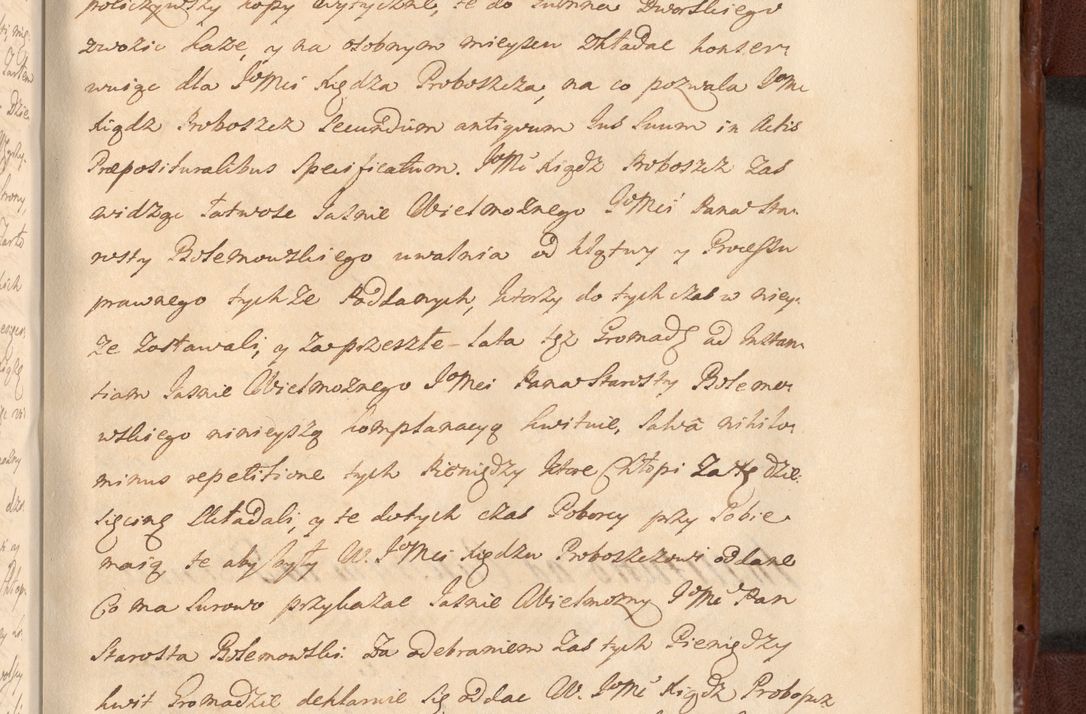 policzywszy kopy wytyczne, te do Gumna Dworskiego
zwozic każe, y na osobnym mieyscu składac konser,
wuiąc dla JoMci Xiędza Proboszcza, na co pozwala JoMc
Xiądz Proboszcz secundum antiqvum Jus suum in Actis
Præposituralibus specificatum. JoMć Xiądz Proboszcz zas
widząc łatwosc Jasnie Wielmożnego JoMci Pana Sta,
rosty Bolemowskiego uwalnia od klątwy y Processu
prawnego tychże Poddanych, ktorzy do tych czas w niey,
że zostawali, y za przeszłe lata tęż Gromadę ad Instan,
tiam Jasnie Wielmożnego JoMci Pana Starosty Bolemo,
wskiego ninieyszą komplanacyą kwituie, salvâ nihilo,
minus repetitione tych Pieniędzy ktore Chłopi za tę dzie,
sięcinę składali, y te dotych czas Poborcy przy sobie
maią te aby były W. JoMci Xiędzu Proboszczowi oddane
Co ma surowo przykazac Jasnie Wielmożny JoMć Pan
Starosta Bolemowski. Za odebraniem zas tych Pieniędzy
kwit Gromadzie deklaruie się oddac W. JoMć Xiądz Proboszcz